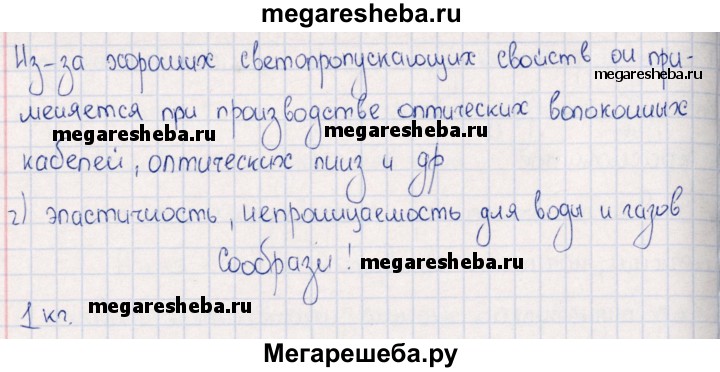 megaresheba.ru
Из-за хороших светопропускающих свойств он при-
megaresheba.ru
меняется при производстве оптических волоконных
megaresheba.ru megaresheba.ru
кабелей, оптических линз и др
г) эластичность, непроницаемость для воды и газов
Сообрази! megaresheba.ru
1 кг. megaresheba.ru
Мегарешеба.ру